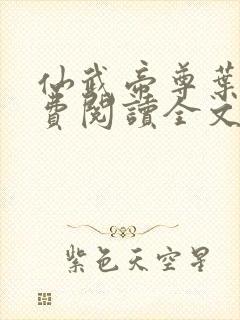 仙武帝尊葉
費閱讀全文
紫色天空星